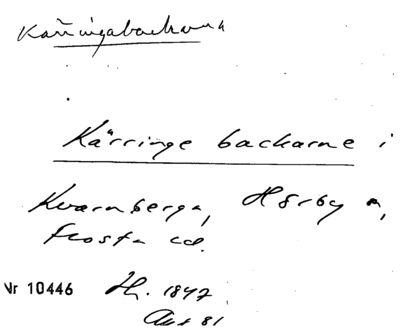 Kärringabackarna
Kärringe backarne i
Kvarnberga, Hörby s,
Frosta hd.
Nr 10446 Hl. 1847
Akt 81